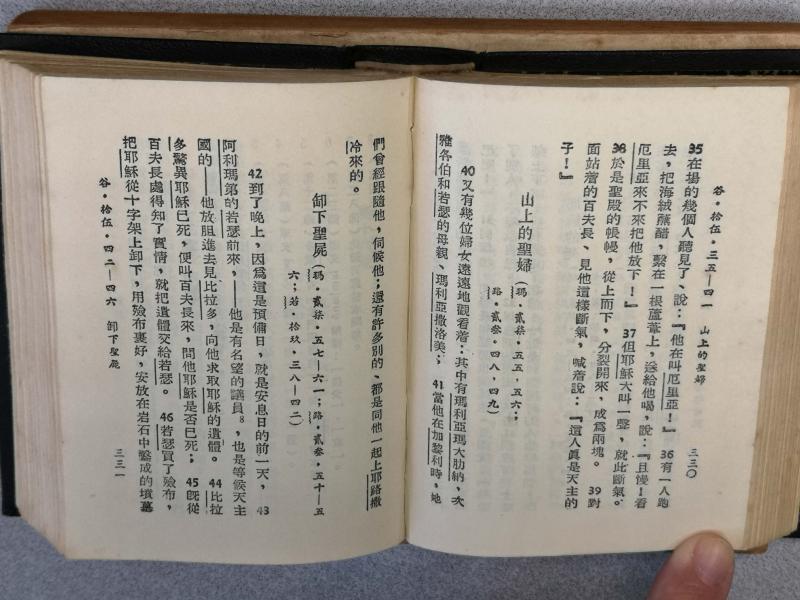 谷・拾伍・三五—四一　山上的聖婦　三三〇
35在場的幾個人聽見了、說：『他在叫厄里亞！』　36有一人跑
去，把海絨蘸醋，繫在一根蘆葦上，送給他喝，說：『且慢！看
厄里亞來不來把他放下！』　37但耶穌大叫一聲，就此斷氣。
38於是聖殿的帳幔，從上而下，分裂開來，成爲兩塊。　39對
面站着的百夫長、見他這樣斷氣，喊着說：『這人眞是天主的
子！』
山上的聖婦（瑪・貳柒・五五，五六；
路・貳叁・四八，四九）
40又有幾位婦女遠遠地觀看着：其中有瑪利亞瑪大肋納，次
雅各伯和若瑟的母親、瑪利亞撒洛美；　41當他在加黎利時，她
們曾經跟隨他，伺候他；還有許多別的、都是同他一起上耶路撒
冷來的。
卸下聖屍（瑪・貳柒・五七—六一；路・貳叁・五十—五
六；若・拾玖・三八—四二）
42到了晚上，因爲這是預備日，就是安息日的前一天，　43
阿利瑪第的若瑟前來，——他是有名望的議員8，也是等候天主
國的——他放胆進去見比拉多，向他求取耶穌的遺體。　44比拉
多驚異耶穌已死，便叫百夫長來，問他耶穌是否已死；　45旣從
百夫長處得知了實情，就把遺體交給若瑟。　46若瑟買了殮布，
把耶穌從十字架上卸下，用殮布裹好，安放在岩石中鑿成的墳墓
谷・拾伍・四二—四六　卸下聖屍　三三一